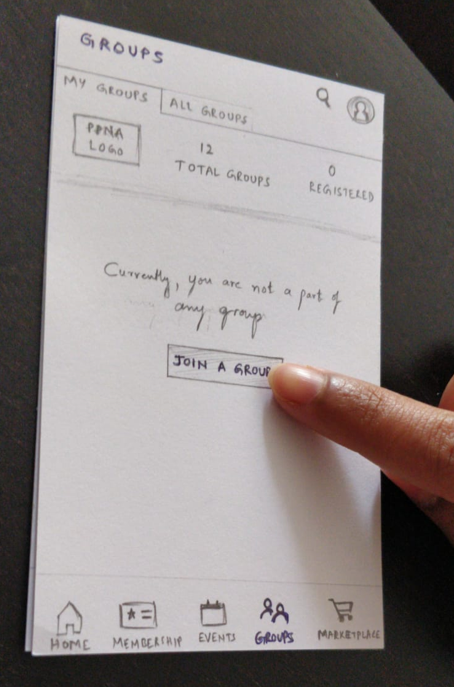 GROUPS
MY GROUPS
ALL GROUPS
LOGO
12
TOTAL GROUPS
0
REGISTERED
Currently, you are not a part of
any group
JOIN A GROUP
HOME
MEMBERSHIP
EVENTS
GROUPS
MARKETPLACE